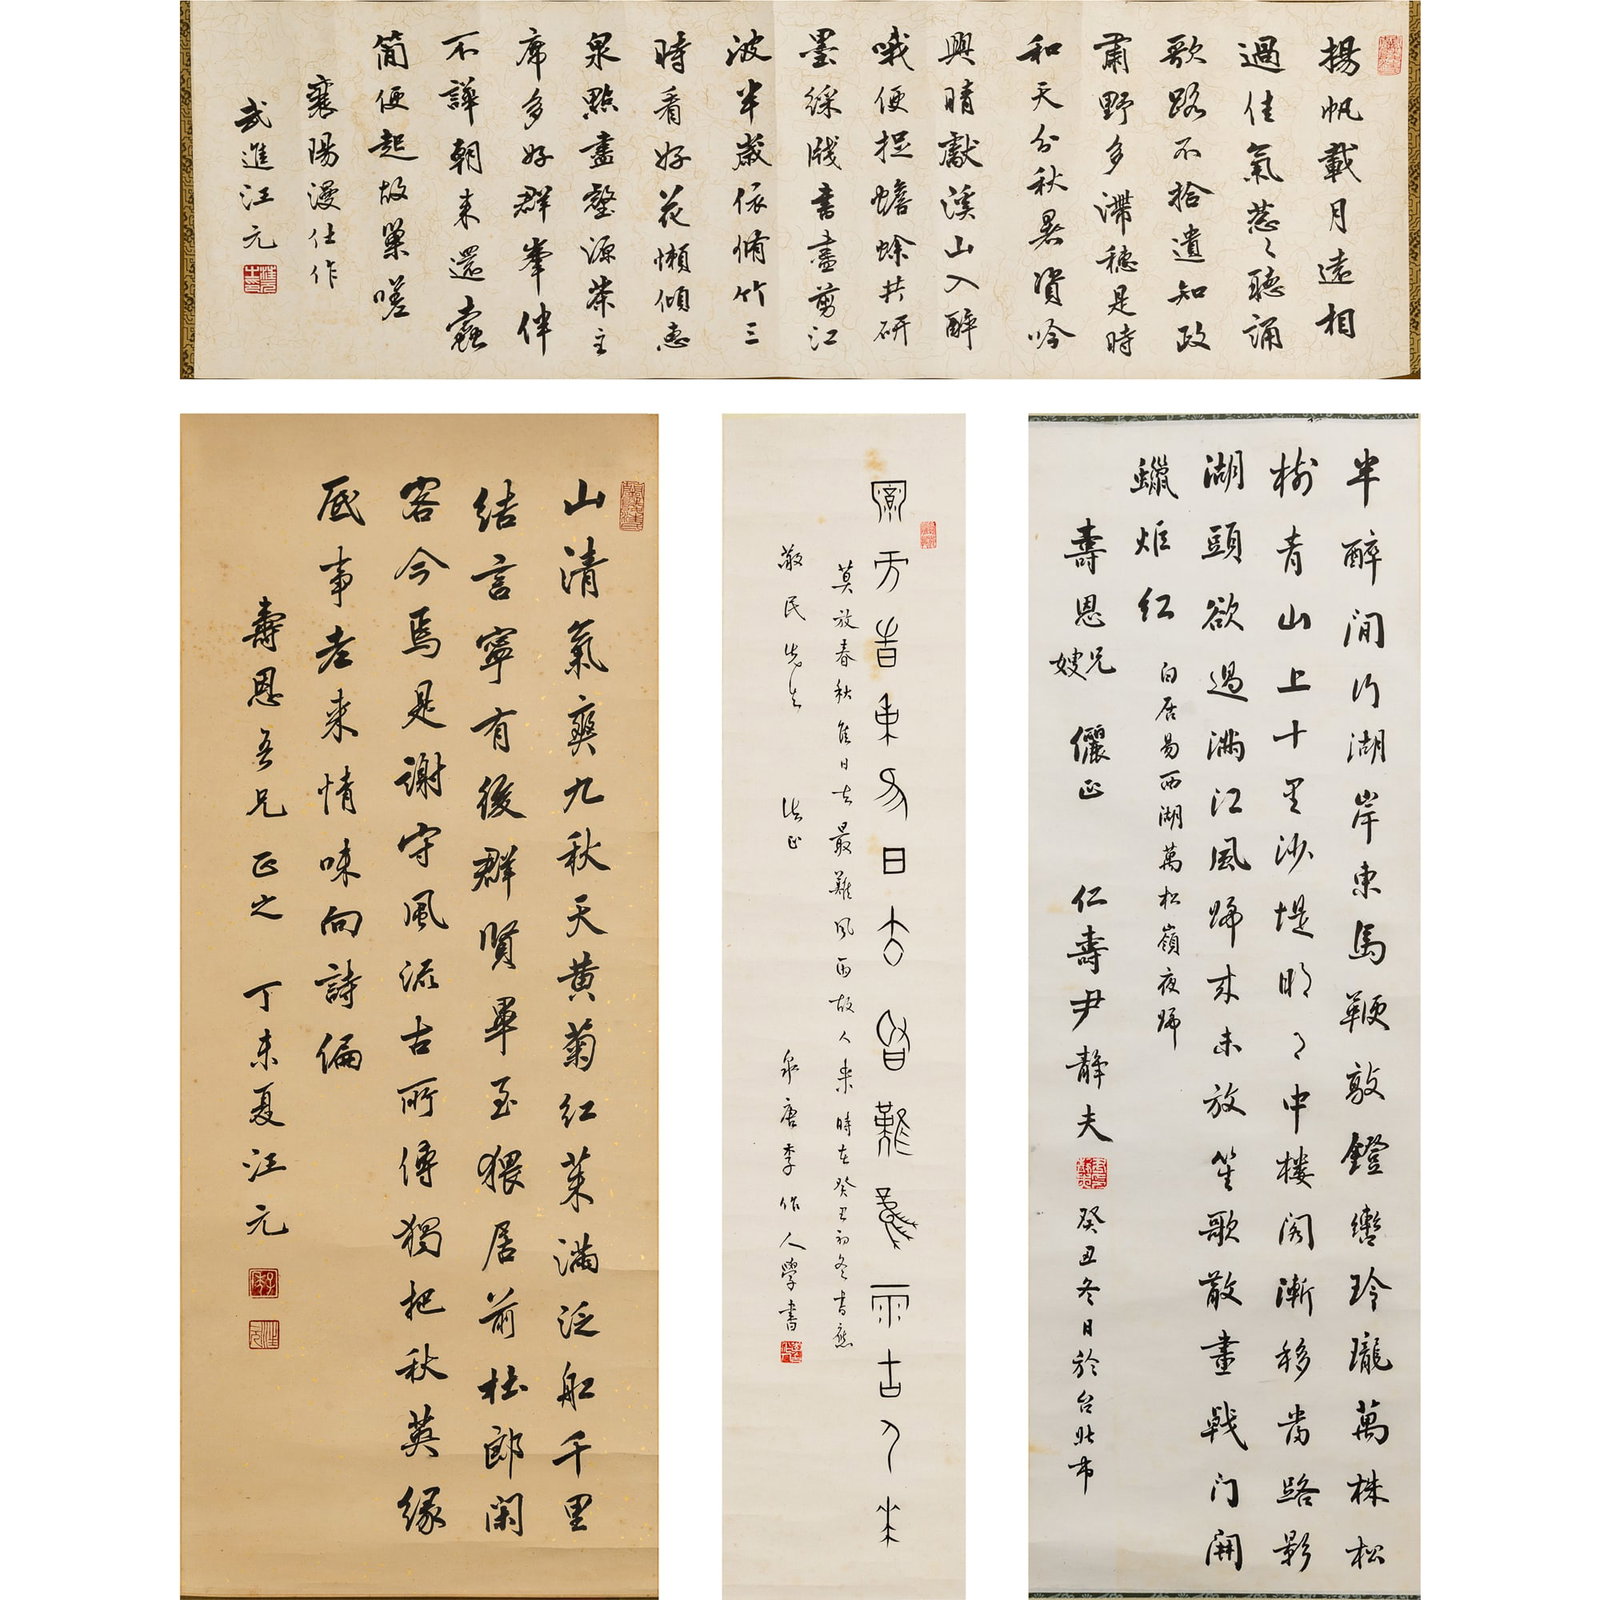 揚帆載月遠相
過佳氣蔥〻聽誦
歌路不拾遺知政
肅野多滯穗是時
和天分秋暑資吟
興晴獻溪山入醉
哦便捉蟾蜍共研
墨綵牋書盡剪江
波半歲依脩竹三
時看好花懶傾惠
泉點盡壑源茶主
席多好群峯伴
不譁朝来還蠹
簡便起故巢嗟
襄陽漫仕作
武進汪元
半醉閒行湖岸東馬鞭敲鐙轡玲瓏萬株松
樹青山上十里沙堤明月中樓閣漸移當路影
湖頭欲過滿江風歸来未放笙歌散畫戟門開
蠟炬红 白居易西湖萬松嶺夜歸
壽恩兄嫂 儷正 仁壽尹静夫 癸丑冬日於台北市
莫放春秋佳日去最難風雨故人来
莫放春秋佳日去最難風雨故人来時在癸丑初冬書應
敬民先生 法正 泉唐李作人學書
山清氣爽九秋天黄菊红茱滿泛船千里
結言寧有後群賢畢至猥居前杜郎閑
客今焉是謝守風流古所傳獨把秋英緣
底事老来情味向詩偏
壽恩吾兄正之 丁未夏汪元